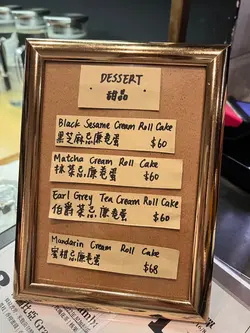 DESSERT
甜品
Black Sesame Cream Roll Cake
黑芝麻忌廉卷蛋 $60
Matcha Cream Roll Cake
抹茶忌廉卷蛋 $60
Earl Grey Tea Cream Roll Cake
伯爵茶忌廉卷蛋 $60
Mandarin Cream Roll Cake
蜜柑忌廉卷蛋 $68